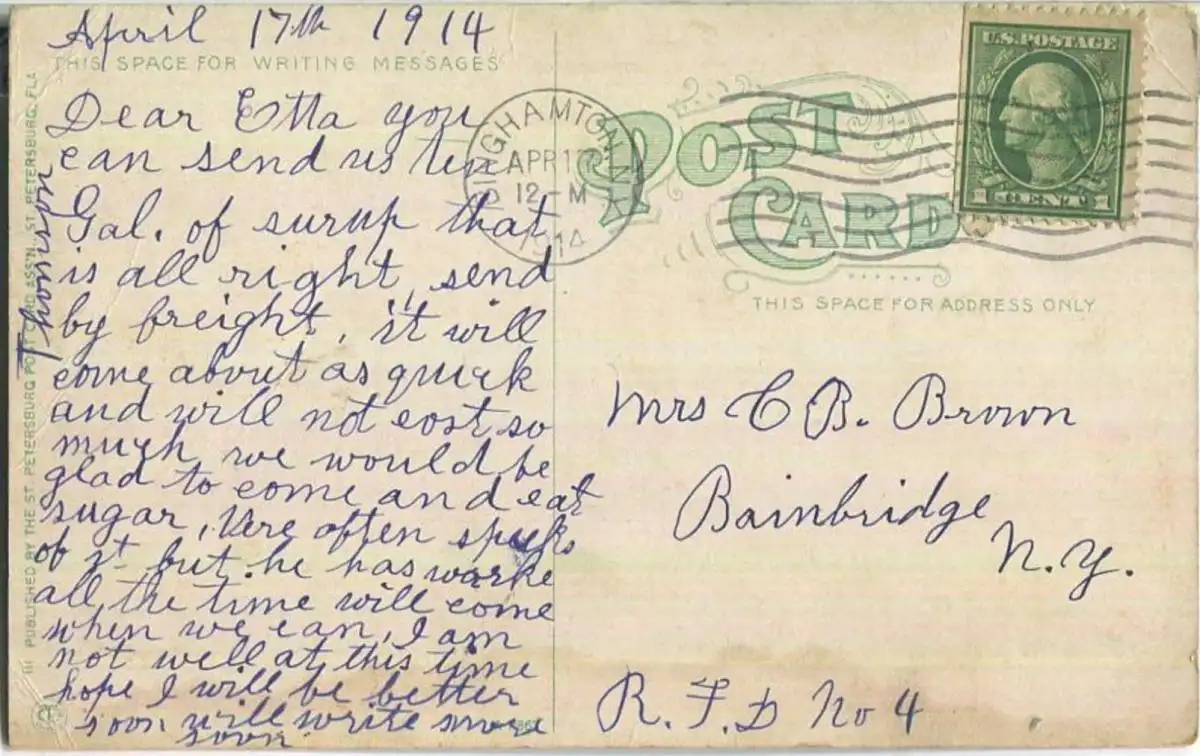 April 17th 1914
THIS SPACE FOR WRITING MESSAGES
Dear Etta you
can send us ten
Gal. of surup that
is all right, send
by freight, it will
come about as quick
and will not cost so
much, we would be
glad to come and eat
sugar, Vere often speeks
of it but he has worke
all the time will come
when we can, I am
not well at this time
hope I will be better
soon will write more
soon
PUBLISHED BY THE ST. PETERSBURG POST CARD ASS'N. ST. PETERSBURG, FLA
BINGHAMTON, N.Y.
APR 17
12-M
1914
POST
CARD
U.S. POSTAGE
1 CENT 1
THIS SPACE FOR ADDRESS ONLY
Mrs C B. Brown
Bainbridge
N.Y.
R.F.D No 4